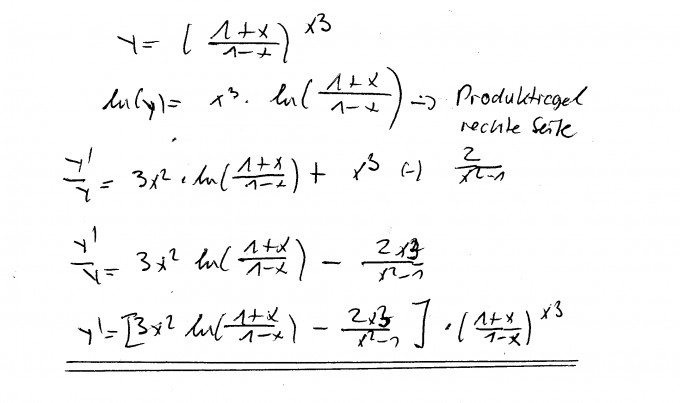 y = ( (1+x)/(1-x) )^x³
ln(y) = x³ · ln( (1+x)/(1-x) ) => Produktregel
rechte Seite
y'/y = 3x² · ln( (1+x)/(1-x) ) + x³ (-) 2/(x²-1)
y'/y = 3x² ln( (1+x)/(1-x) ) - 2x³/(x²-1)
y' = [3x² ln( (1+x)/(1-x) ) - 2x³/(x²-1) ] · ( (1+x)/(1-x) )^x³